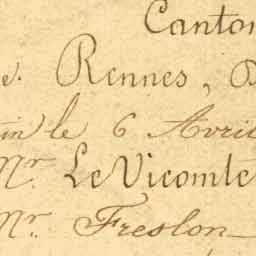 Canton
e. Rennes, D
in le 6 Avril
Mr. Le Vicomte
Mr. Freslon